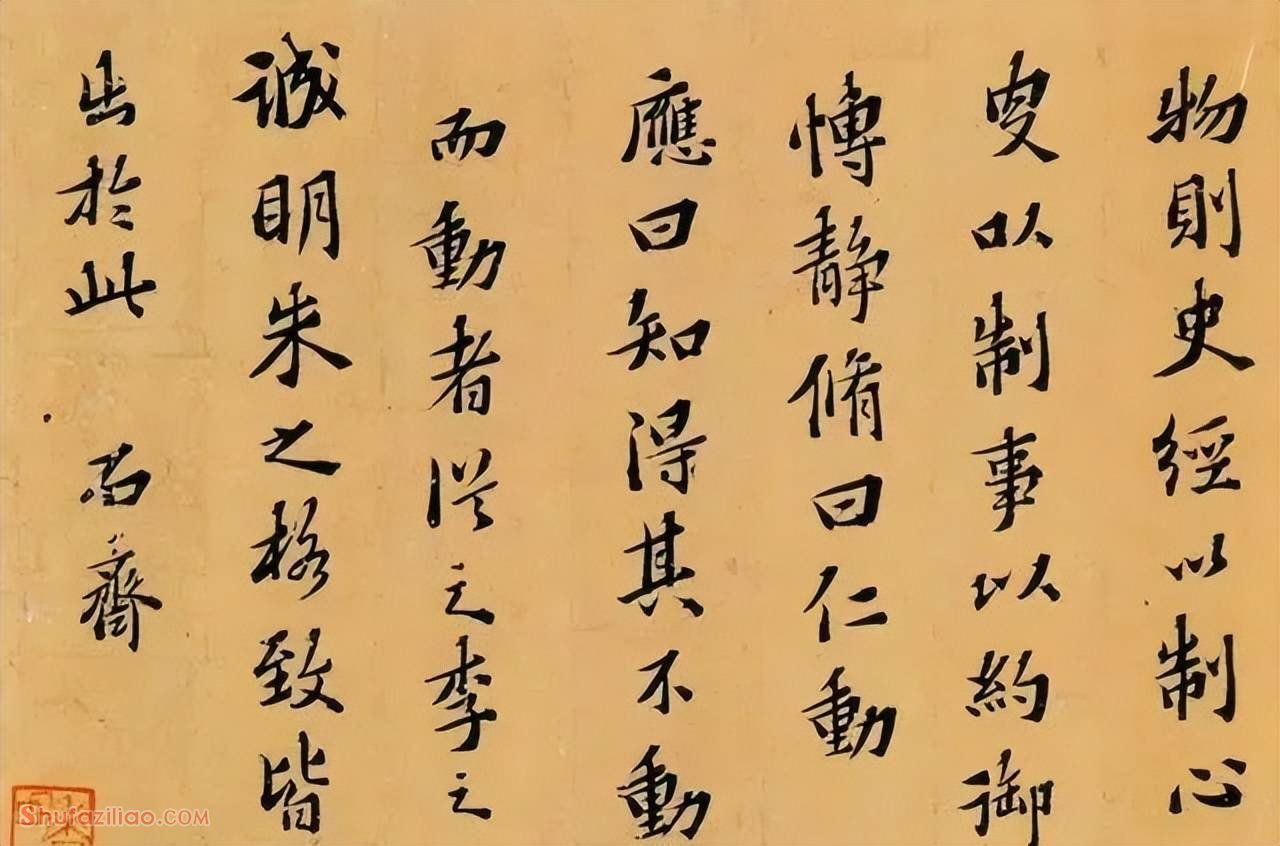 物則史經以制心
叟以制事以約御
博靜脩曰仁動
應曰知得其不動
而動者從之李之
誠明朱之格致皆
出於此 尚齋
Shufaziliao.com